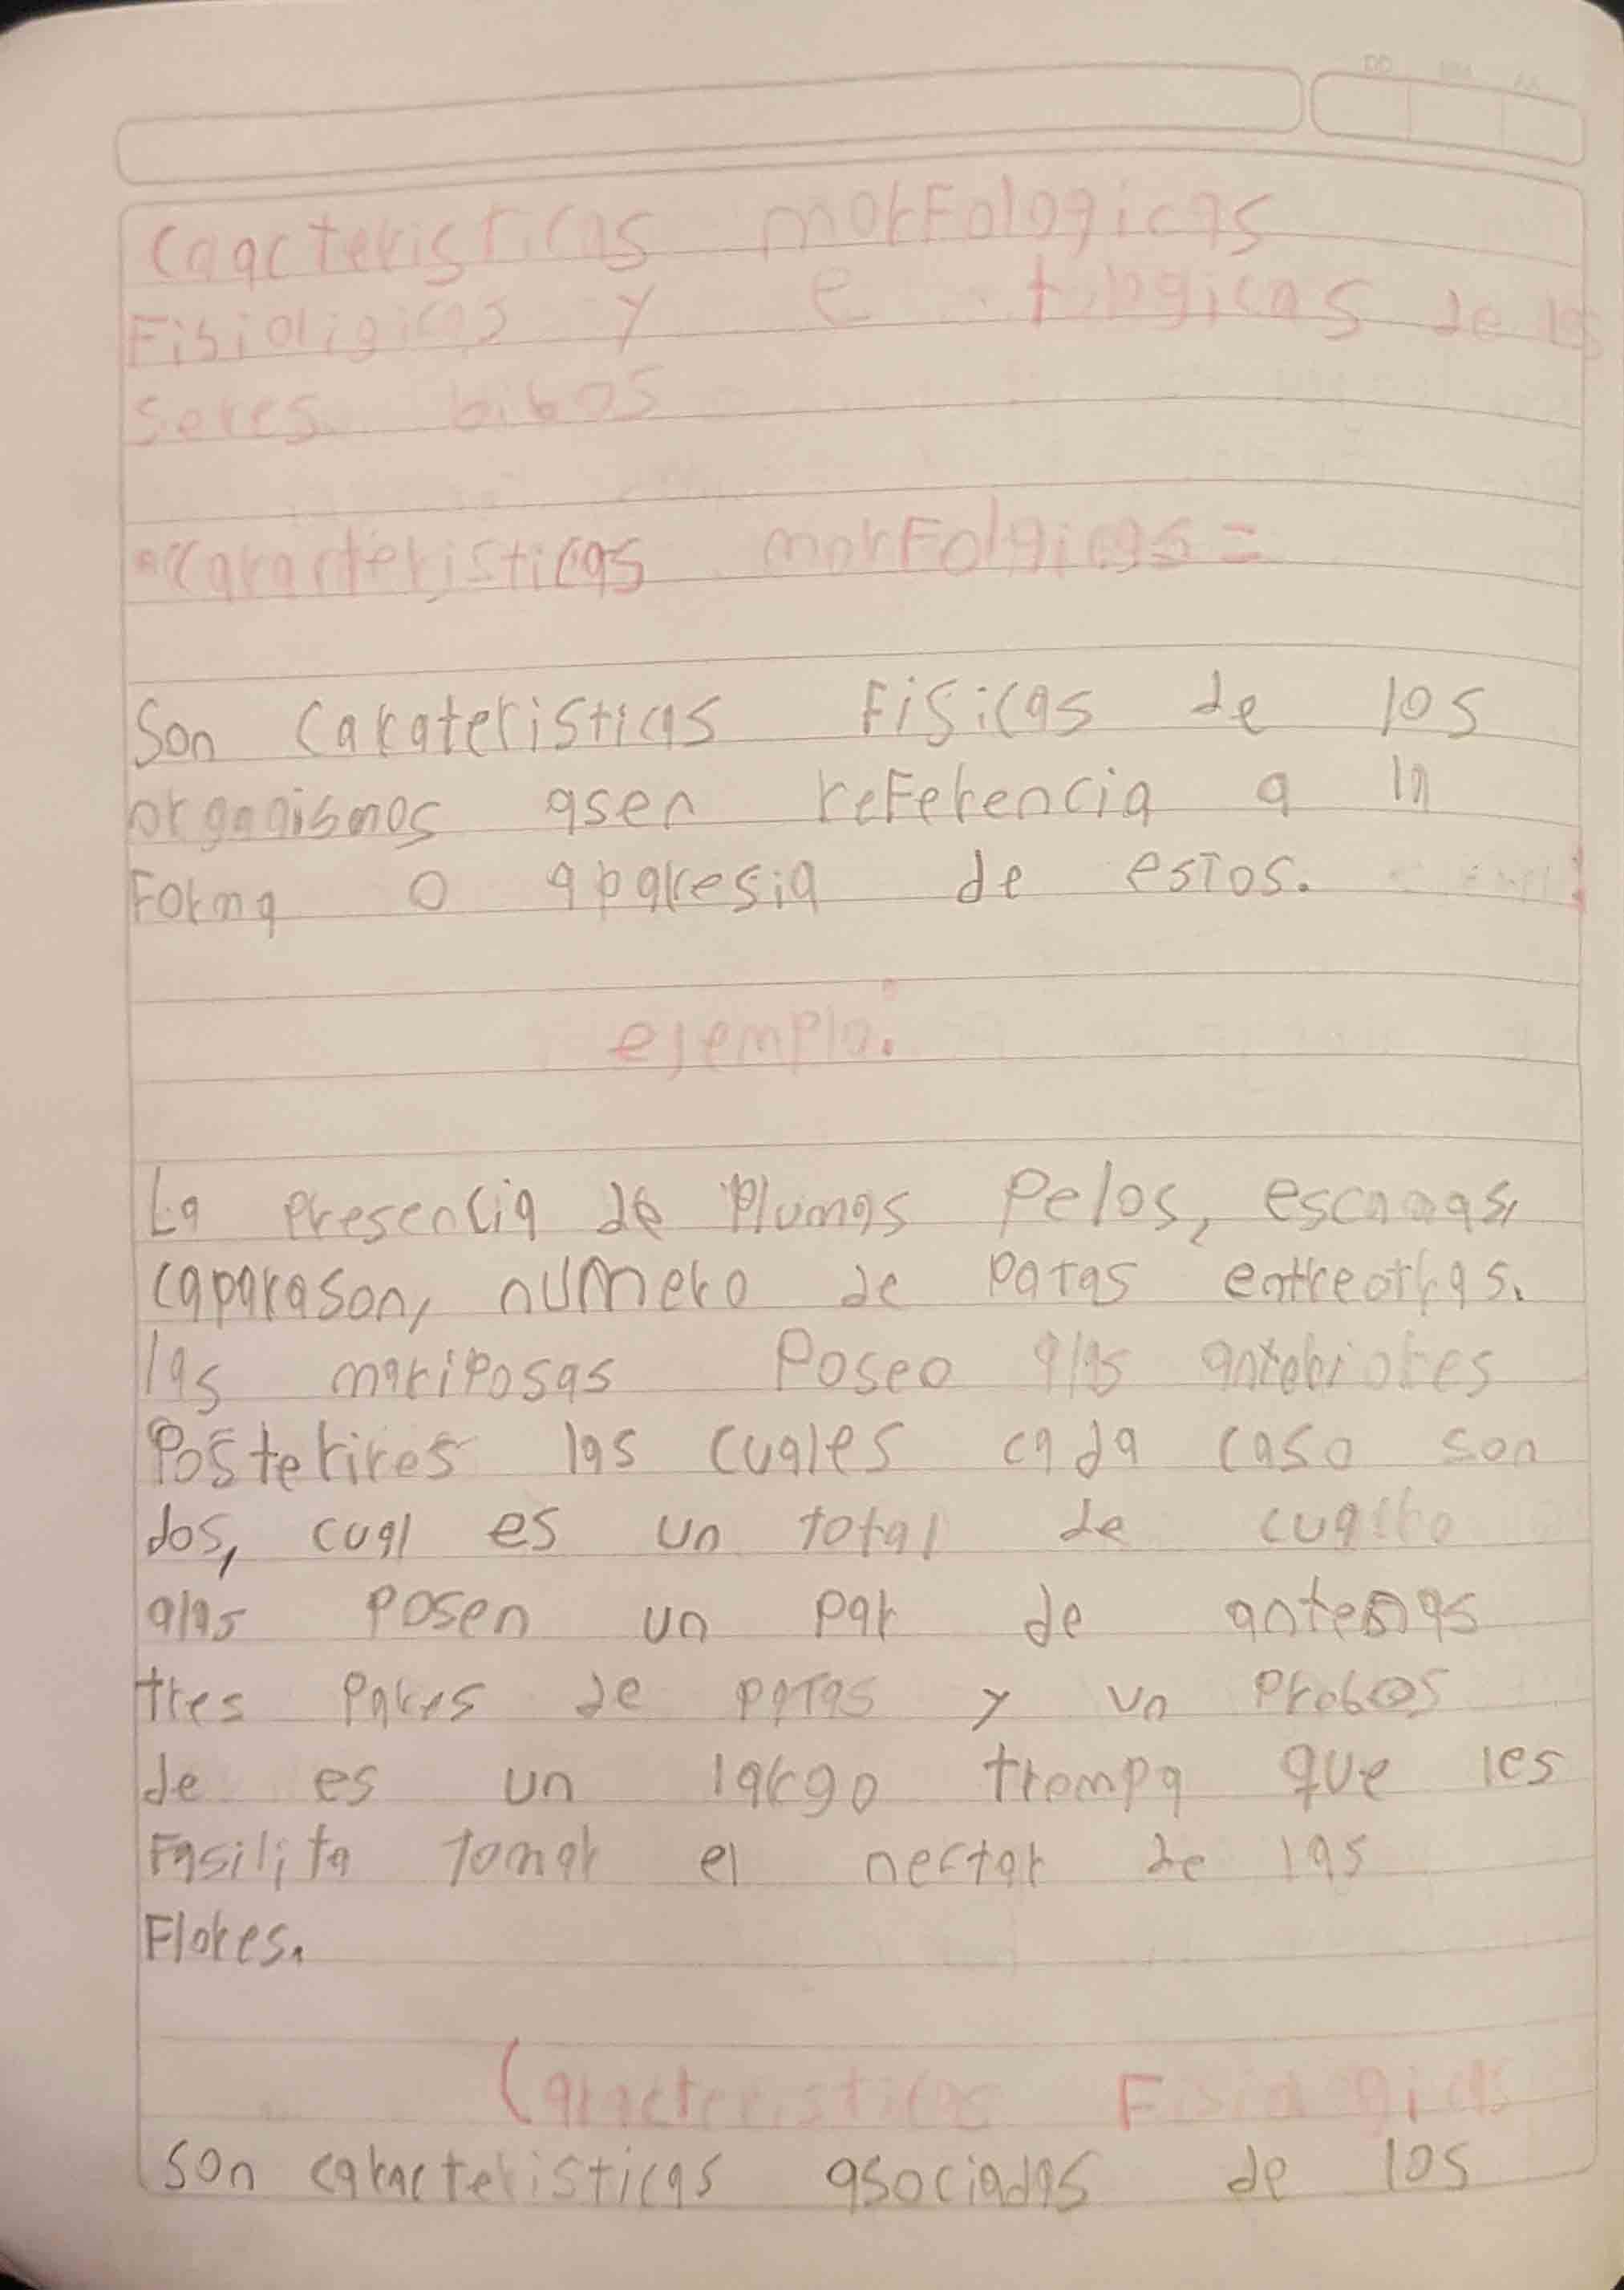 Caacteristicas morFologicas
Fisioligicas y e tologicas de los
seres bibos
Caracteristicas morFolgicas=
Son Carateristicas Fisicas de los
organismos asen reFerencia a la
Forma o aparesia de estos.
ejemplo:
La presencia de Plumas Pelos, escamas,
caparason, numero de patas entreotras.
las mariposas Poseo alas
Posterires las cuales cada caso son
dos, cual es un total de cuatro
alas posen un par de antenas
tres pares de patas y un probos
de es un largo trompa que les
Fasilita tomar el nectar de las
Flores.
Caracteristicas Fisiologicas
son caracteristicas asociadas de los